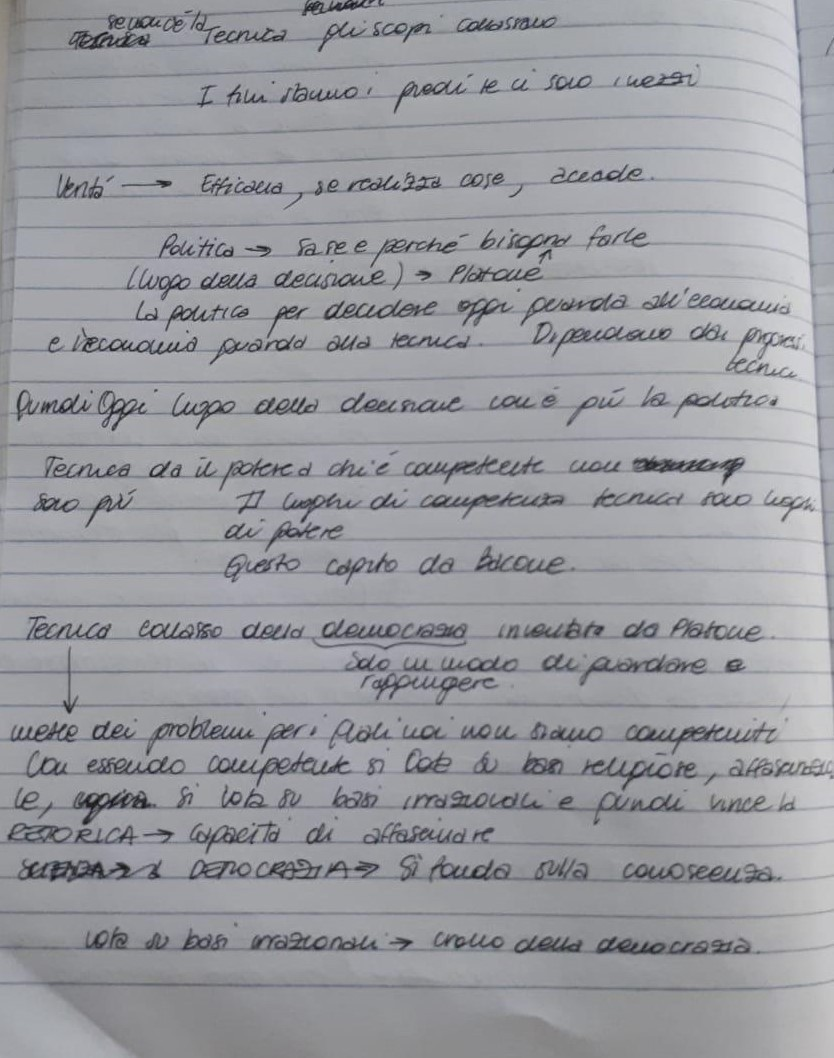 se non c'è la
Tecnica gli scopi collassano
I fini stanno i piedi se ci sono i mezzi
Verità → Efficacia, se realizza cose, accade.
Politica → fare e perché bisogna farle
(luogo della decisione) → Platone ↑
La politica per decidere oggi guarda all'economia
e l'economia guarda alla tecnica. Dipendono dai progressi
tecnici
Qundi Oggi luogo della decisione non è più la politica
Tecnica da il potere a chi è competente non
sono più I luoghi di competenza tecnica sono luoghi
di potere
Questo capito da Bacone.
Tecnica collasso della democrazia inventata da Platone.
Solo un modo di guardare e
raggiungere.
↓
mette dei problemi per i quali noi non siamo competenti
Non essendo competente si vota su basi religiose,
le, si vota su basi irrazionali e quindi vince la
RETORICA → Capacità di affascinare
DEMOCRAZIA → Si fonda sulla conoscenza.
vota su basi irrazionali → crollo della democrazia.